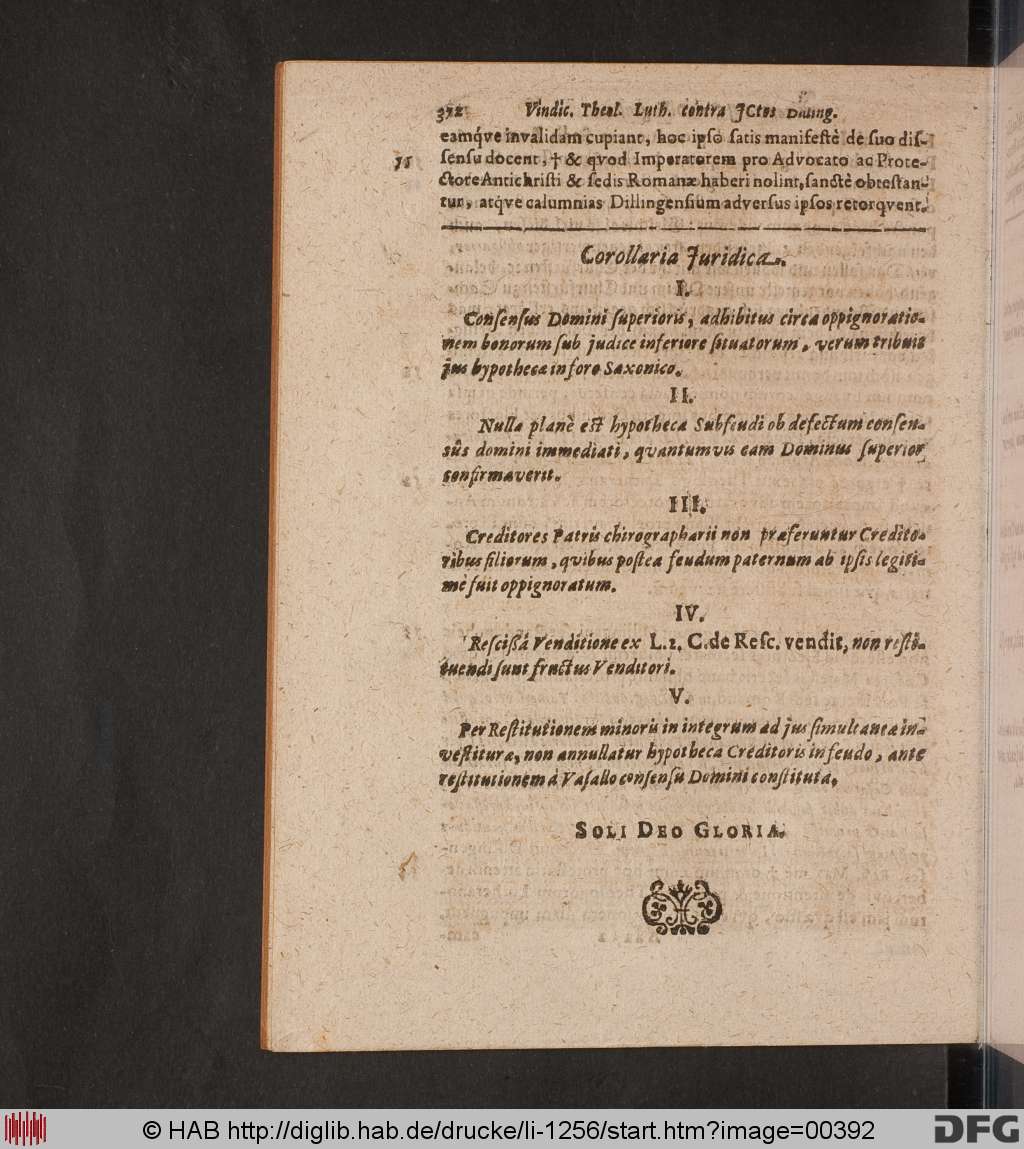 372 Vindic. Theol. Luth. contra JCtos Diling.
eamq́ve invalidam cupiant, hoc ipso satis manifestè de suo dis-
35 sensu docent, † & qvod Imperatorem pro Advocato ac Prote-
ctore Antichristi & sedis Romanæ haberi nolint, sanctè obtestan-
tur, atq́ve calumnias Dillingensium adversus ipsos retorqvent.
Corollaria Juridica.
I.
Consensus Domini superioris, adhibitus circa oppignoratio-
nem bonorum sub judice inferiore situatorum, verum tribuit
jus hypotheca in foro Saxonico.
II.
Nulla planè est hypotheca Subfeudi ob defectum consen-
sûs domini immediati, qvantumvis eam Dominus superior
confirmaverit.
III.
Creditores Patris chirographarii non præferuntur Credito-
ribus filiorum, qvibus postea feudum paternum ab ipsis legiti-
mè fuit oppignoratum.
IV.
Rescißâ Venditione ex L. 2. C. de Resc. vendit, non resti-
tuendi sunt fructus Venditori.
V.
Per Restitutionem minoris in integrum ad jus simultaneæ in-
vestituræ, non annullatur hypotheca Creditoris in feudo, ante
restitutionem à Vasallo consensu Domini constituta.
SOLI DEO GLORIA.
© HAB http://diglib.hab.de/drucke/li-1256/start.htm?image=00392
DFG